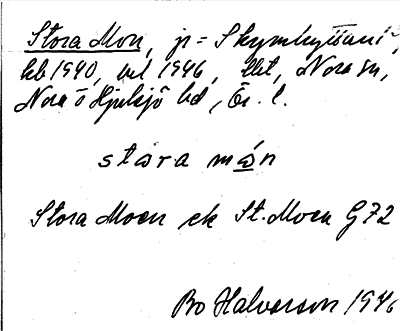 Stora Mon, jr = Skymhyttani,
hb 1940, vel 1946, Nora sn,
Nora o Hjulsjö bd, Ör. l.
stora mån
Stora Moen ek St. Moen G72
Bo Halvarson 1946